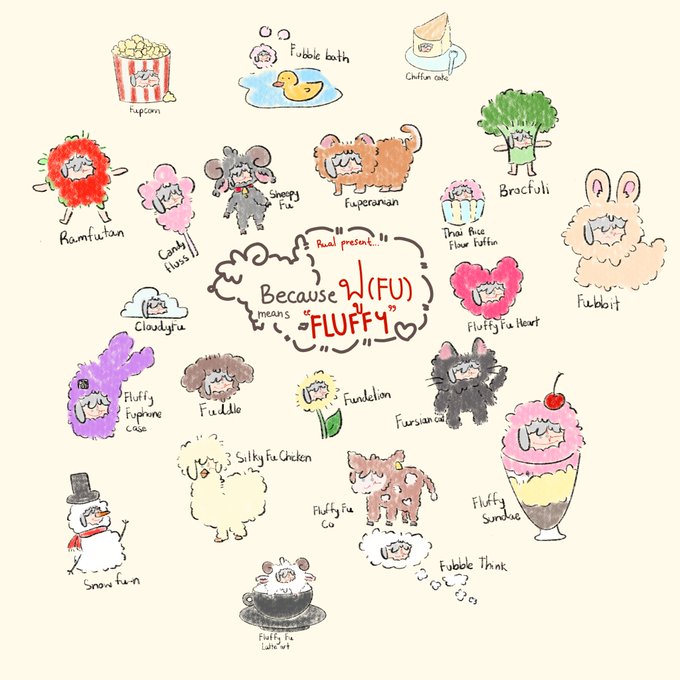 Fupcorn
Fubble bath
Chiffun cake
Ramfutan
Candy
Fluss
Sheepy
Fu
Fuperanian
Thai Rice
Flour Fuffin
Brocfuli
Fubbit
Rual present...
Because ฟู (FU)
means "FLUFFY"
CloudyFu
Fluffy Fu Heart
Fluffy
Fuphone
case
Fuddle
Fundelion
Fursian cat
Silky Fu Chicken
Fluffy Fu
Co
Fluffy
Sundae
Snow fu-n
Fubble Think
Fluffy Fu
Latte art